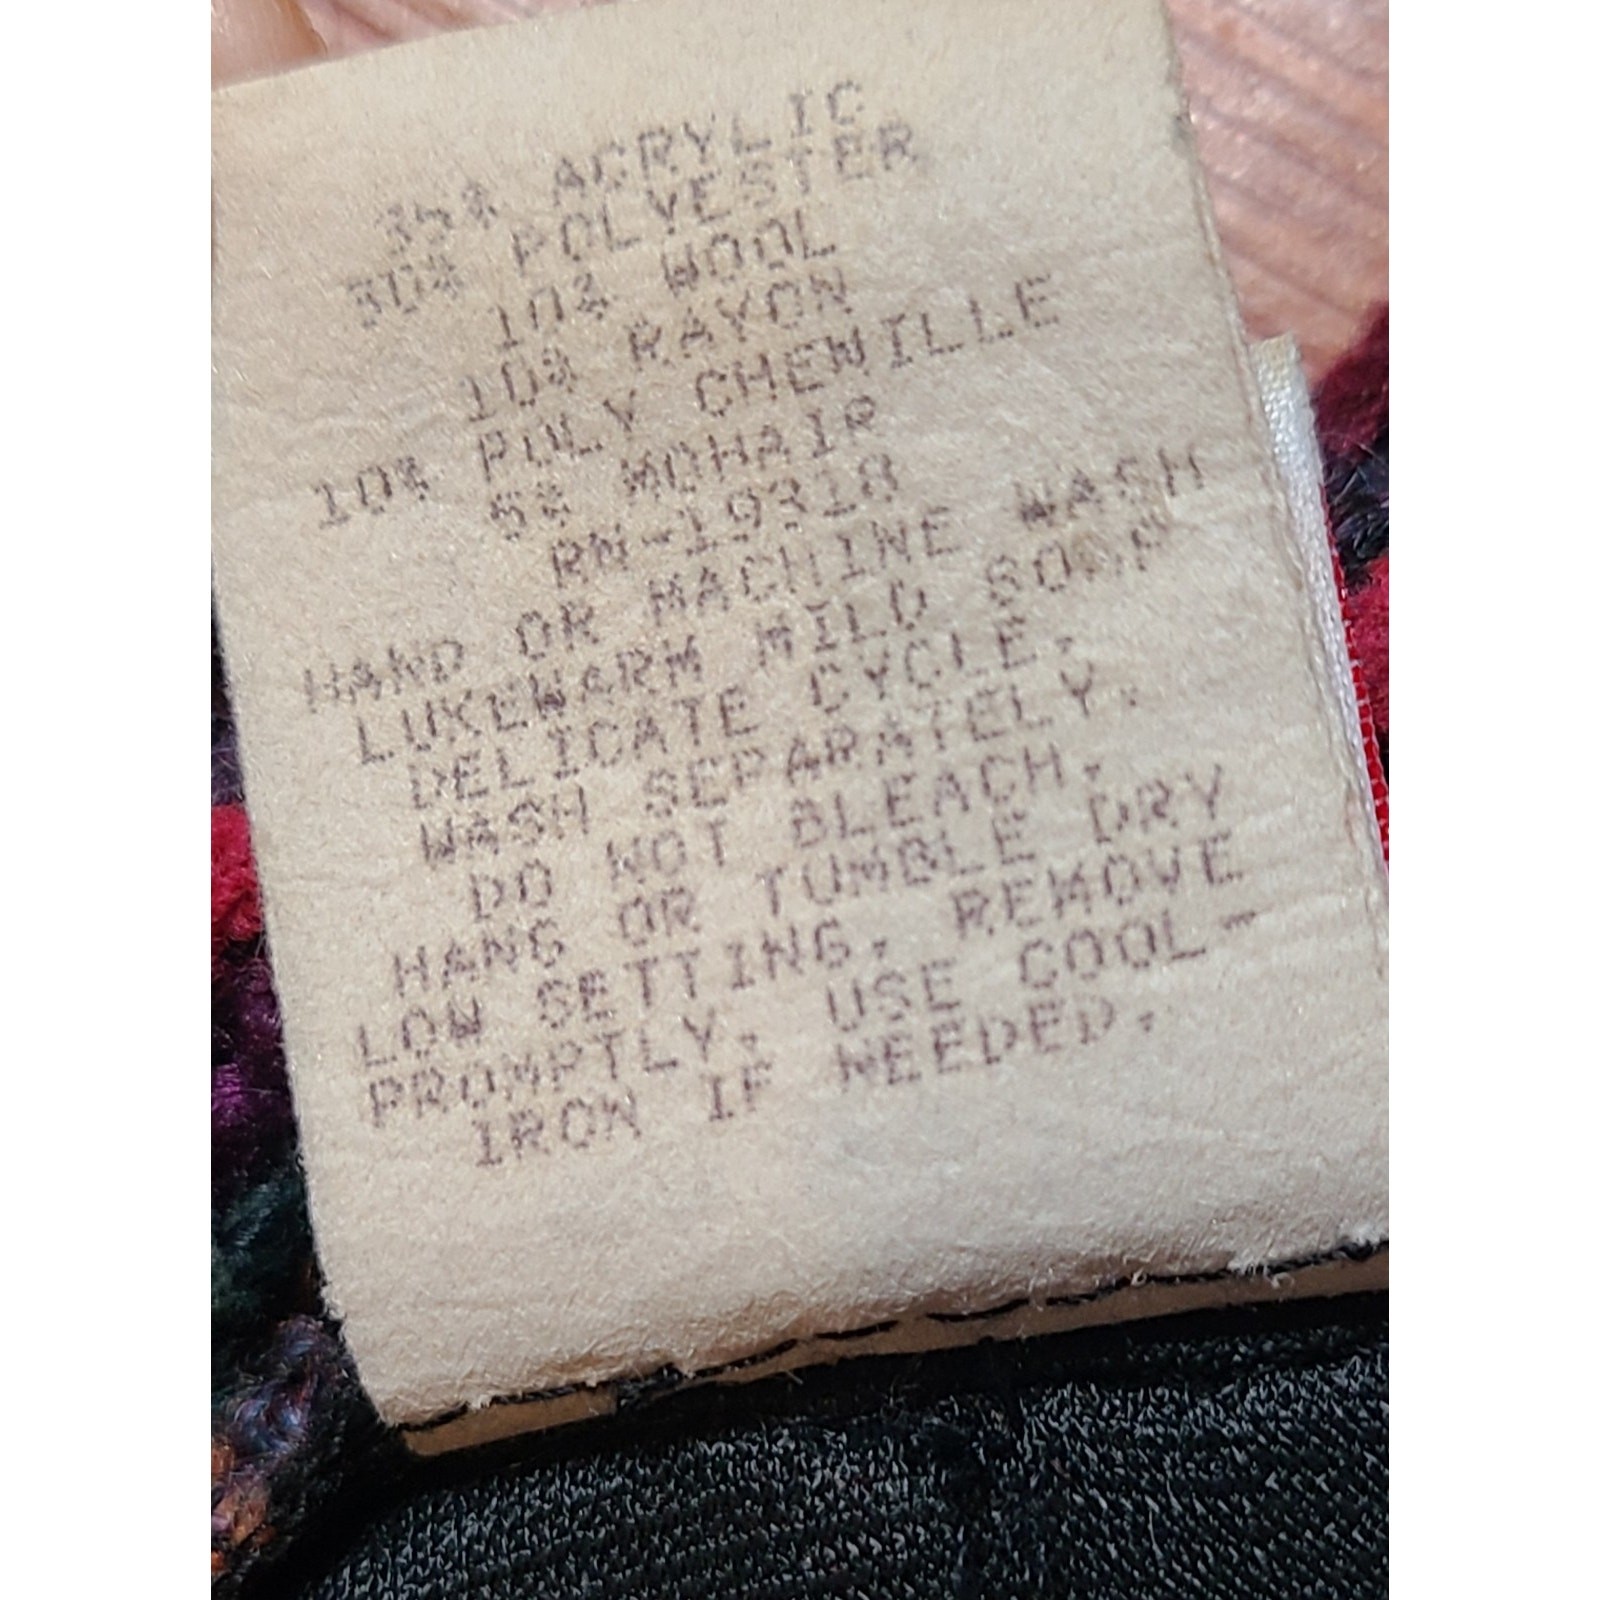 35% ACRYLIC
30% POLYESTER
10% WOOL
10% RAYON
10% POLY CHENILLE
5% MOHAIR
RN-19318
HAND OR MACHINE WASH
LUKEWARM MILD SOAP
DELICATE CYCLE.
WASH SEPARATELY.
DO NOT BLEACH.
HANG OR TUMBLE DRY
LOW SETTING. REMOVE
PROMPTLY. USE COOL-
IRON IF NEEDED.